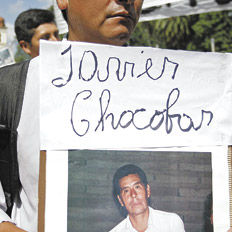 Javier
Chocobar